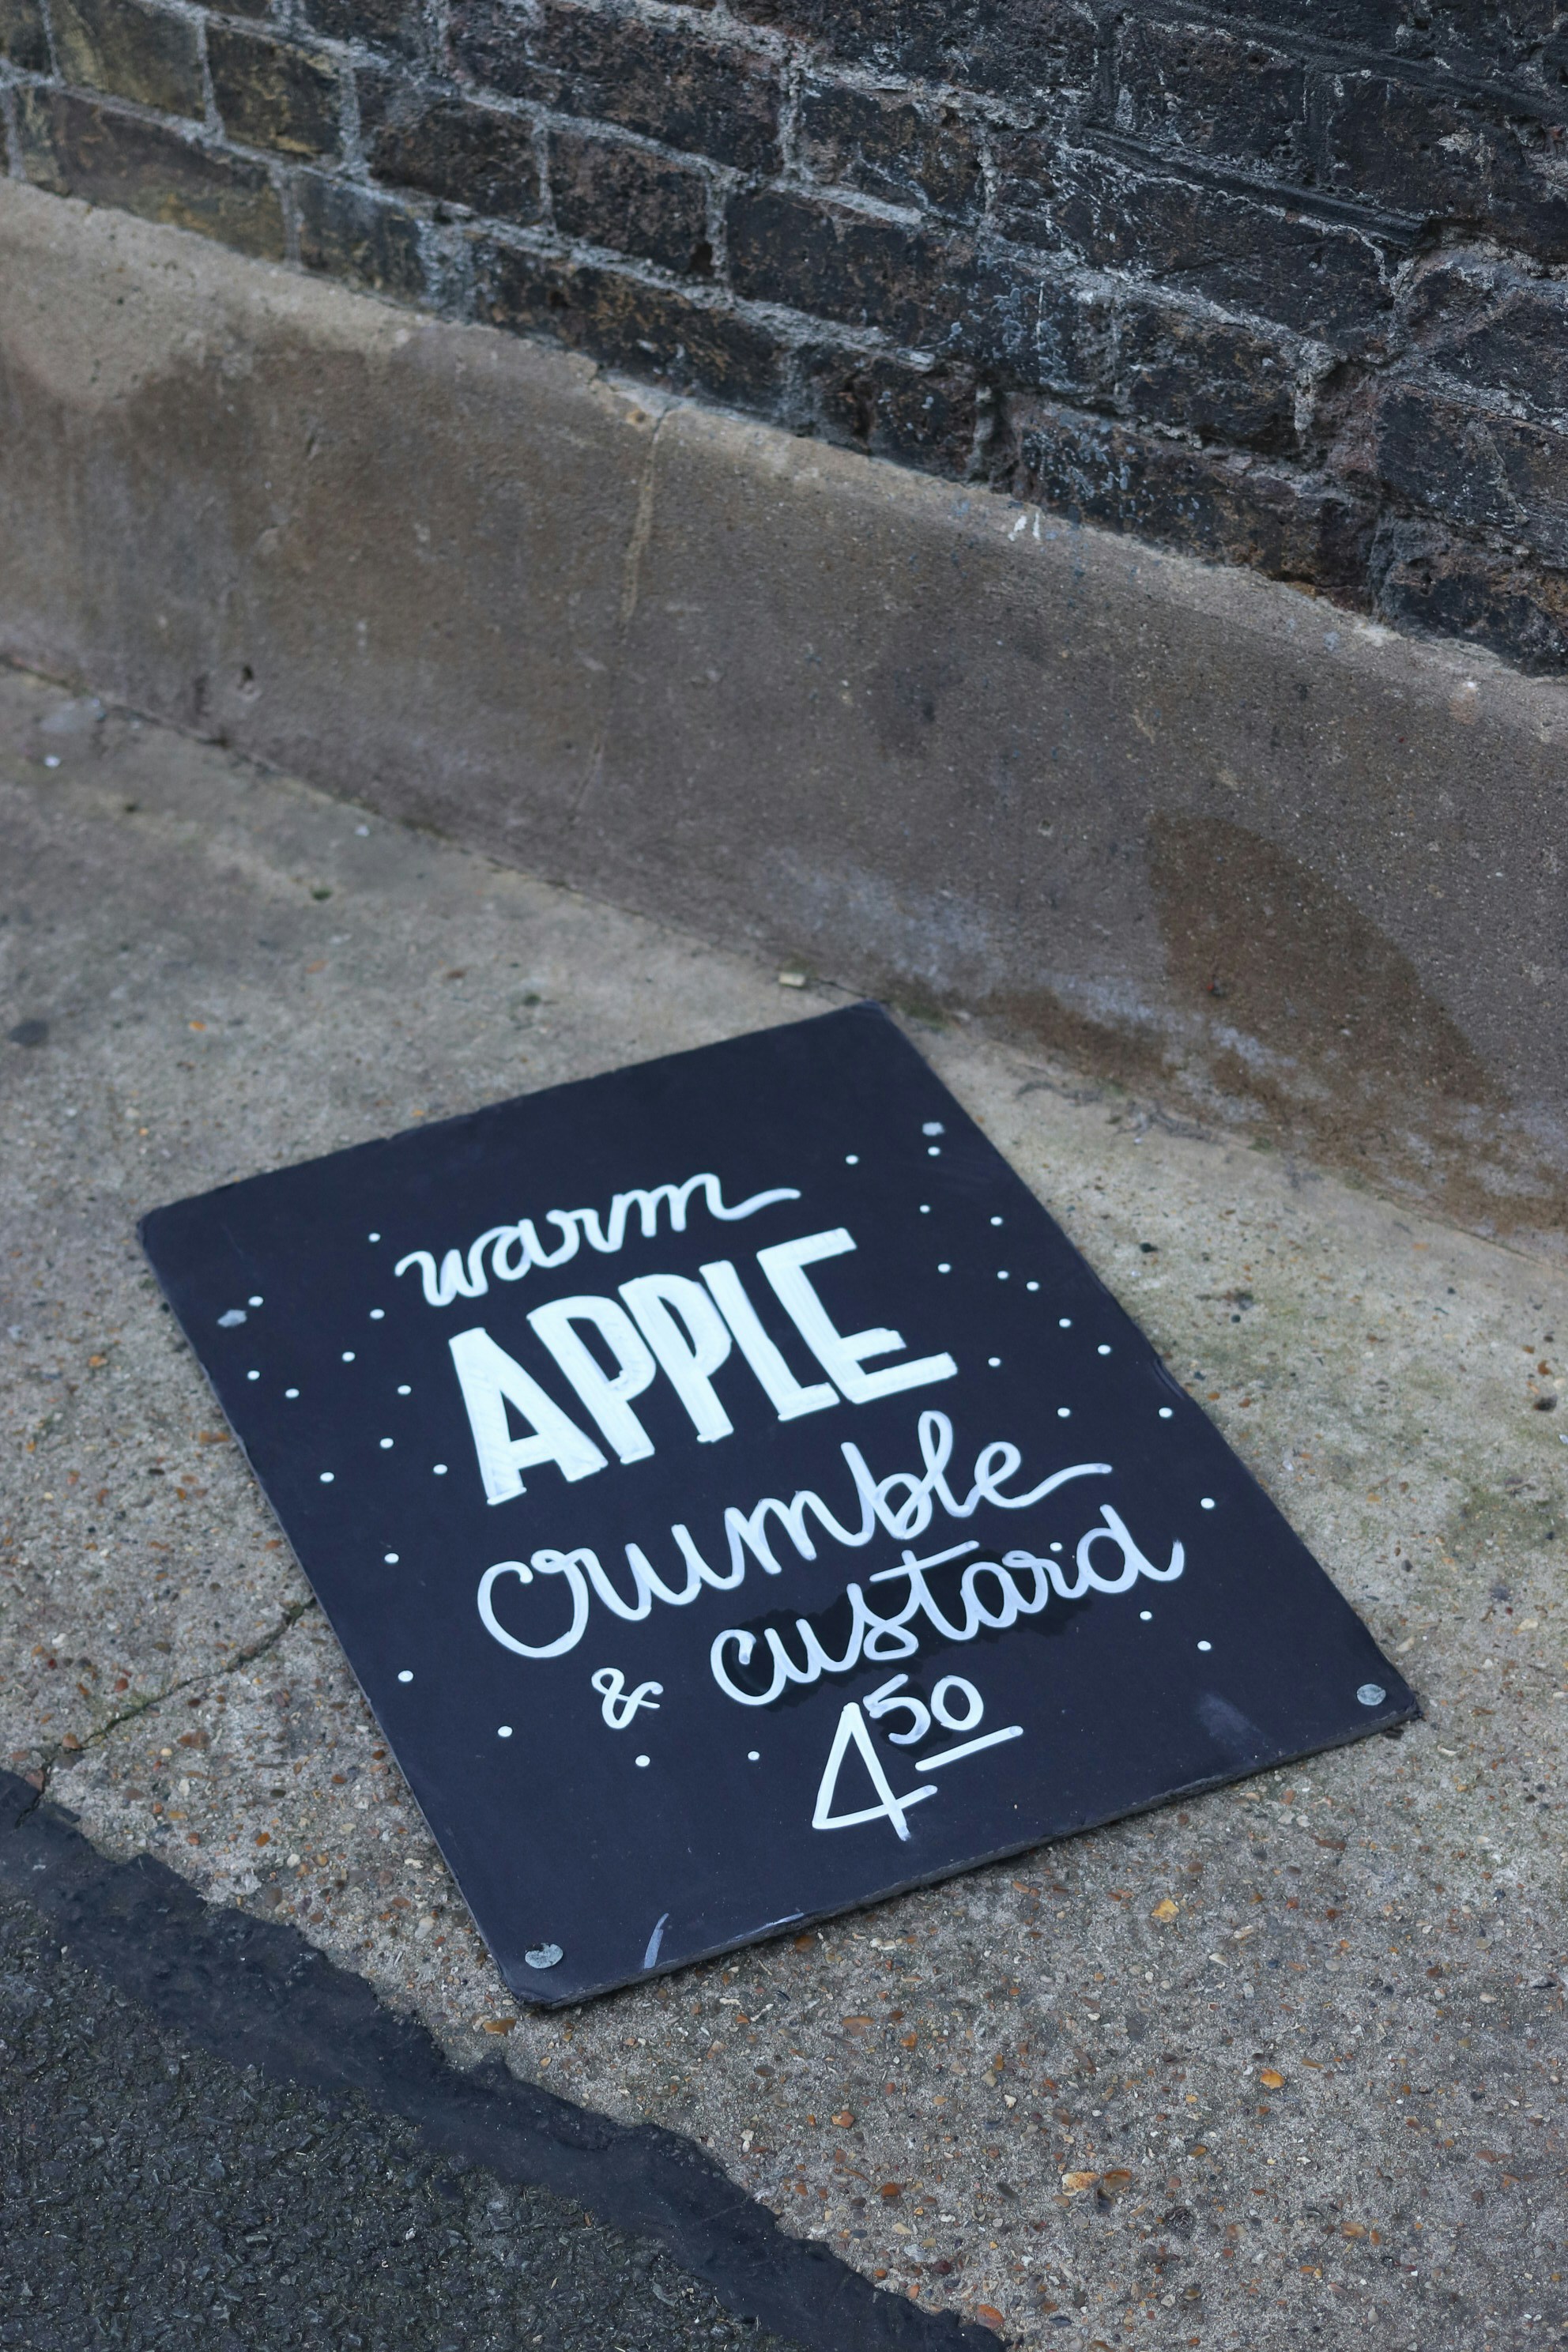 warm
APPLE
crumble
& custard
4 50